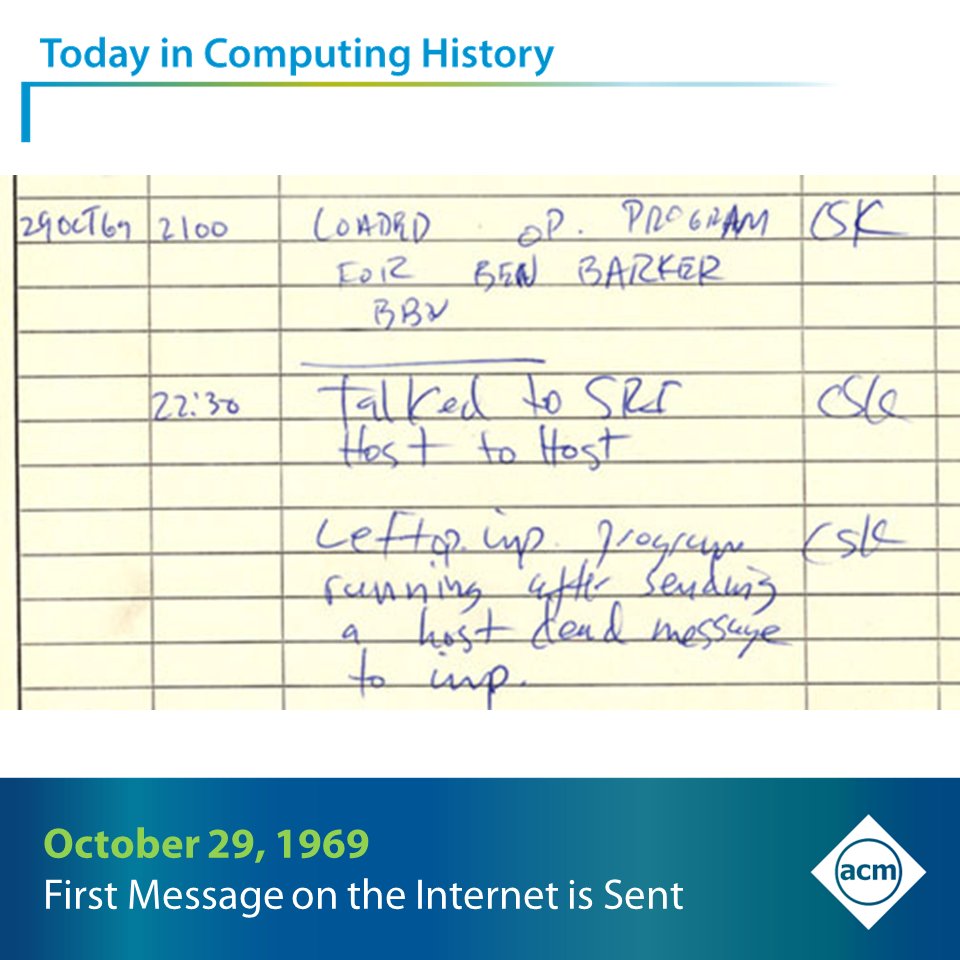 Today in Computing History
29 OCT 69 2100 LOADED OP. PROGRAM CSK
FOR BEN BARKER
BBN
22:30 Talked to SRI CSK
Host to Host
Left op. imp. program CSK
running after sending
a host dead message
to imp.
October 29, 1969
First Message on the Internet is Sent
acm